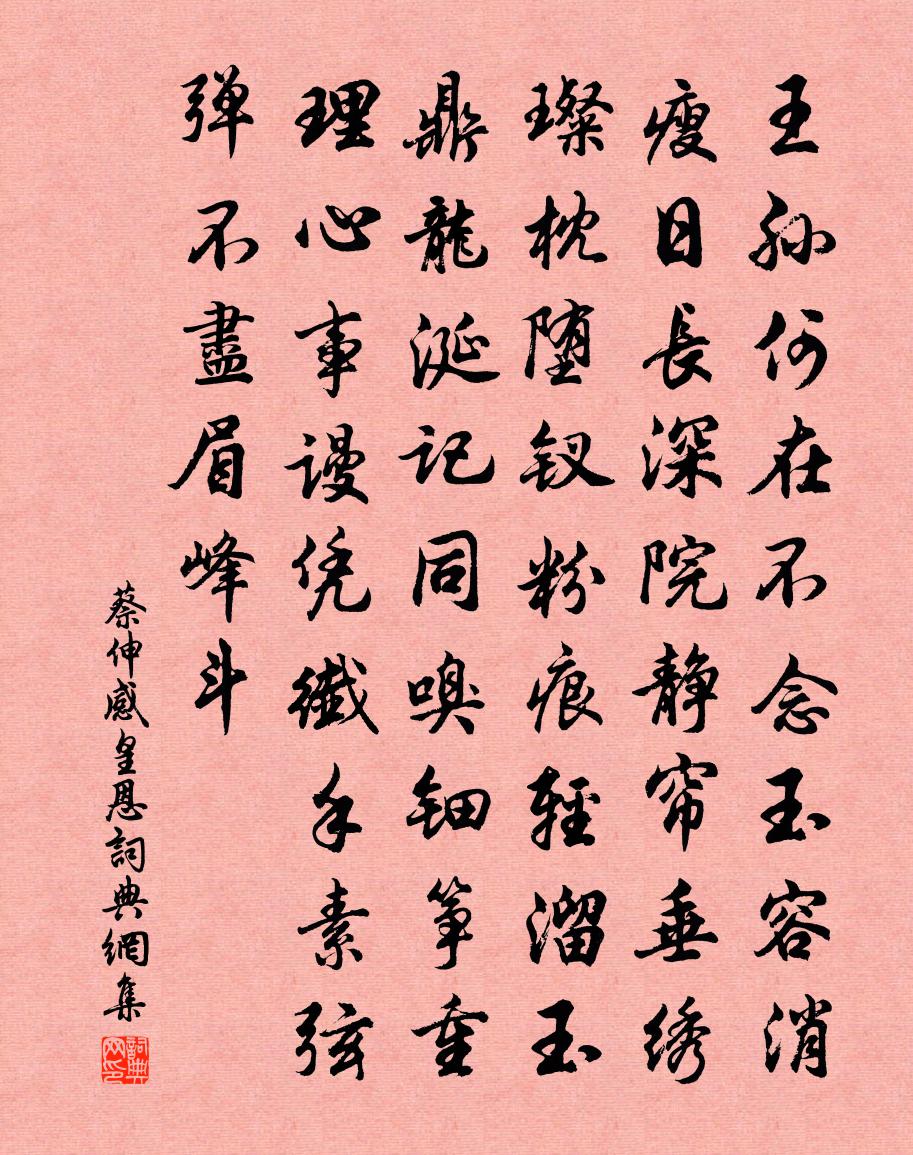 王孙何在不念玉容消
瘦日长深院静帘垂绣
璨枕堕钗粉痕轻溜玉
鼎龙涎记同嗅钿筝重
理心事谩凭纤手素弦
弹不盡眉峰斗
蔡伸感皇恩詞典網集
詞典网印